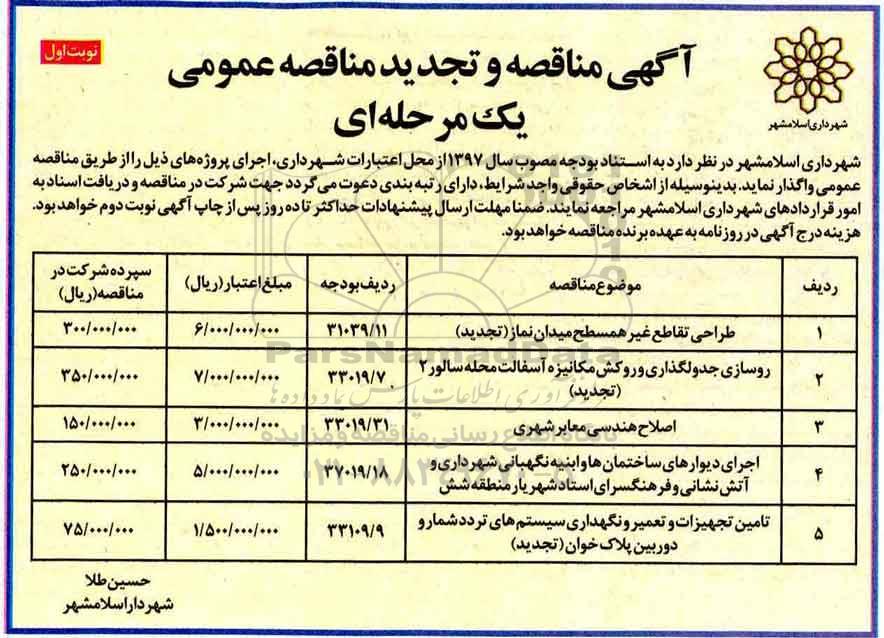 نوبت اول
آگهی مناقصه و تجدید مناقصه عمومی
یک مرحله‌ای
شهرداری اسلامشهر
شهرداری اسلامشهر در نظر دارد به استناد بودجه مصوب سال ۱۳۹۷ از محل اعتبارات شهرداری، اجرای پروژه‌های ذیل را از طریق مناقصه
عمومی واگذار نماید. بدینوسیله از اشخاص حقوقی واجد شرایط، دارای رتبه بندی دعوت می‌گردد جهت شرکت در مناقصه و دریافت اسناد به
امور قراردادهای شهرداری اسلامشهر مراجعه نمایند. ضمنا مهلت ارسال پیشنهادات حداکثر تا ده روز پس از چاپ آگهی نوبت دوم خواهد بود.
هزینه درج آگهی در روزنامه به عهده برنده مناقصه خواهد بود.
ردیف موضوع مناقصه ردیف بودجه مبلغ اعتبار (ریال) سپرده شرکت در
مناقصه (ریال)
۱ طراحی تقاطع غیر همسطح میدان نماز (تجدید) ۳۱۰۳۹/۱۱ ۶/۰۰۰/۰۰۰/۰۰۰ ۳۰۰/۰۰۰/۰۰۰
۲ روسازی جدولگذاری و روکش مکانیزه آسفالت محله سالور ۲
(تجدید) ۳۳۰۱۹/۷ ۷/۰۰۰/۰۰۰/۰۰۰ ۳۵۰/۰۰۰/۰۰۰
۳ اصلاح هندسی معابر شهری ۳۳۰۱۹/۳۱ ۳/۰۰۰/۰۰۰/۰۰۰ ۱۵۰/۰۰۰/۰۰۰
۴ اجرای دیوارهای ساختمان ها و ابنیه نگهبانی شهرداری و
آتش نشانی و فرهنگسرای استاد شهریار منطقه شش ۳۷۰۱۹/۱۸ ۵/۰۰۰/۰۰۰/۰۰۰ ۲۵۰/۰۰۰/۰۰۰
۵ تامین تجهیزات و تعمیر و نگهداری سیستم های تردد شمار و
دوربین پلاک خوان (تجدید) ۳۳۱۰۹/۹ ۱/۵۰۰/۰۰۰/۰۰۰ ۷۵/۰۰۰/۰۰۰
حسین طلا
شهردار اسلامشهر
ParsNamadData